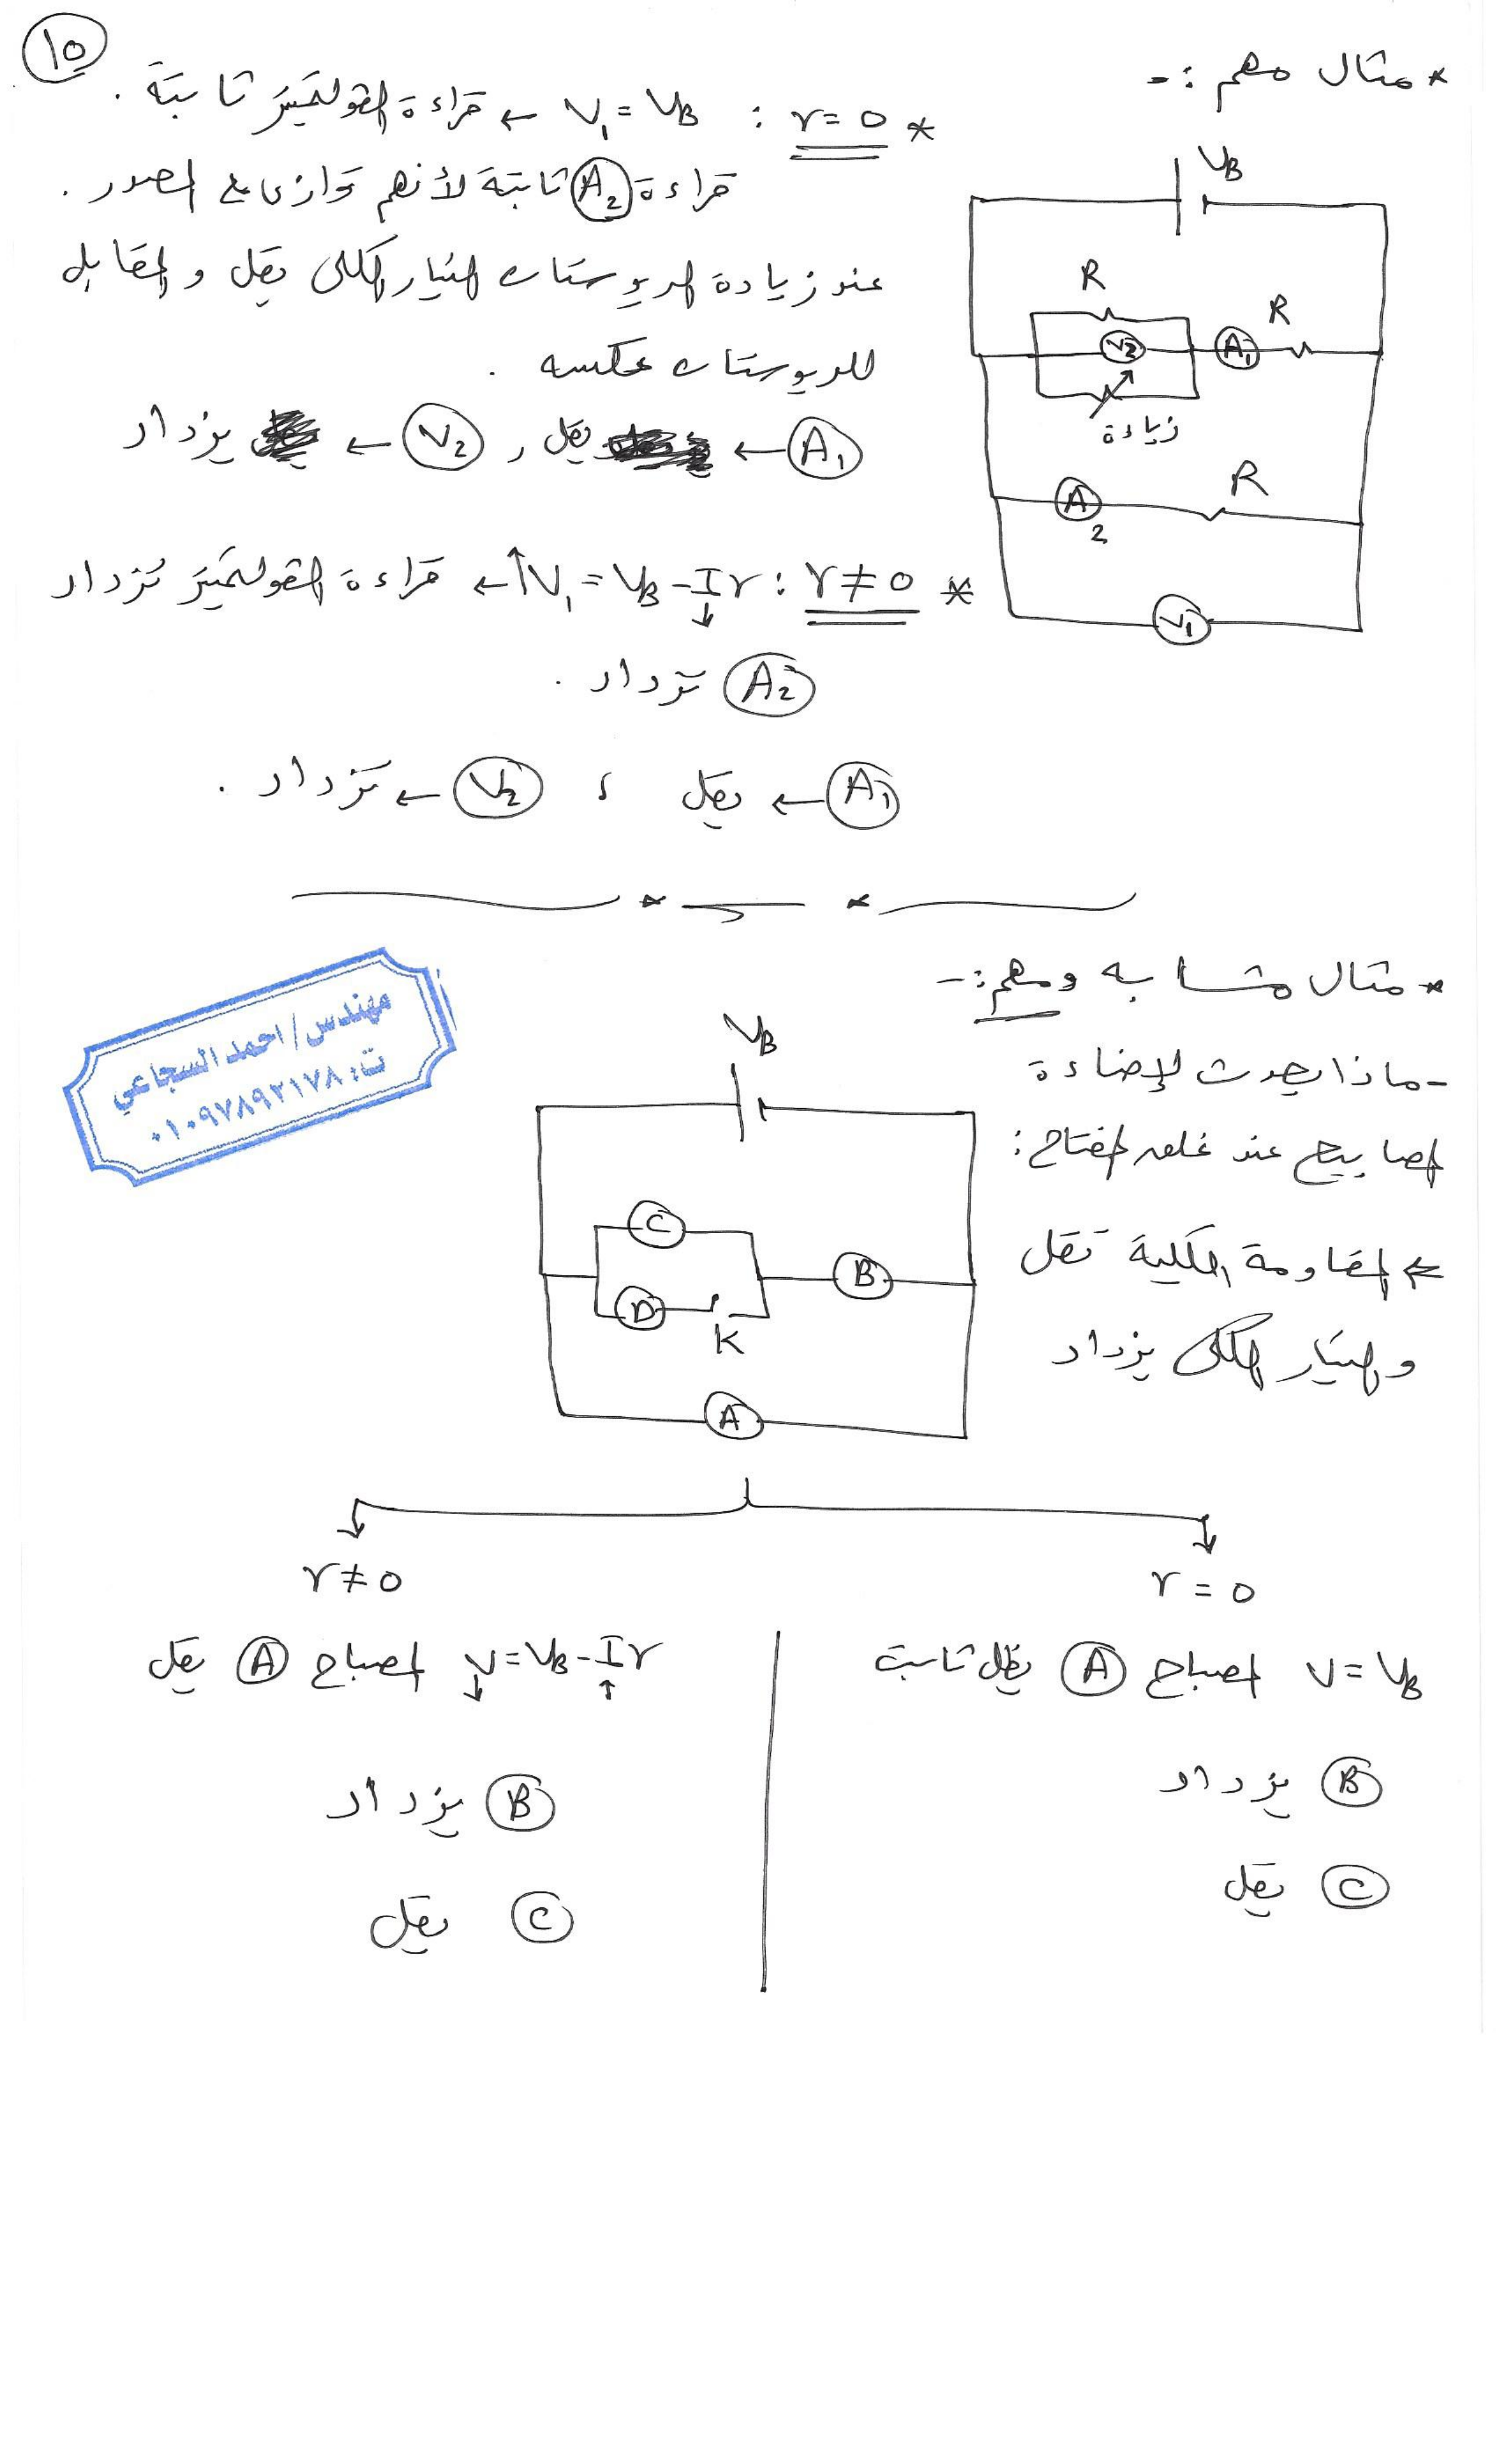 ١٥
* مثال مهم :-
* r = 0 : V₁ = VB ← قراءة الفولتميتر ثابتة .
قراءة A₂ ثابتة لأنهم توازى مع المصدر .
عند زيادة الريوستات التيار الكلى يقل والمقابل
للريوستات عكسه .
A₁ ← يقل , V₂ ← يزداد
* r ≠ 0 : V₁ = VB - Ir ↓ ↑ ← قراءة الفولتميتر تزداد
A₂ تزداد .
A₁ ← يقل ، V₂ ← تزداد .
VB
R
V₂
A₁
R
زيادة
A₂
R
V₁
* مثال مشابه ومهم :-
- ماذا يحدث لإضاءة
المصابيح عند غلق المفتاح :
⇐ المقاومة الكلية تقل
والتيار الكلى يزداد
VB
C
B
D
K
A
مهندس/احمد السجاعي
ت: ٠١٠٩٧٨٩٢١٧٨
r = 0
V = VB المصباح A يظل ثابت
B يزداد
C يقل
r ≠ 0
V = VB - Ir ↓ ↑ المصباح A يقل
B يزداد
C يقل